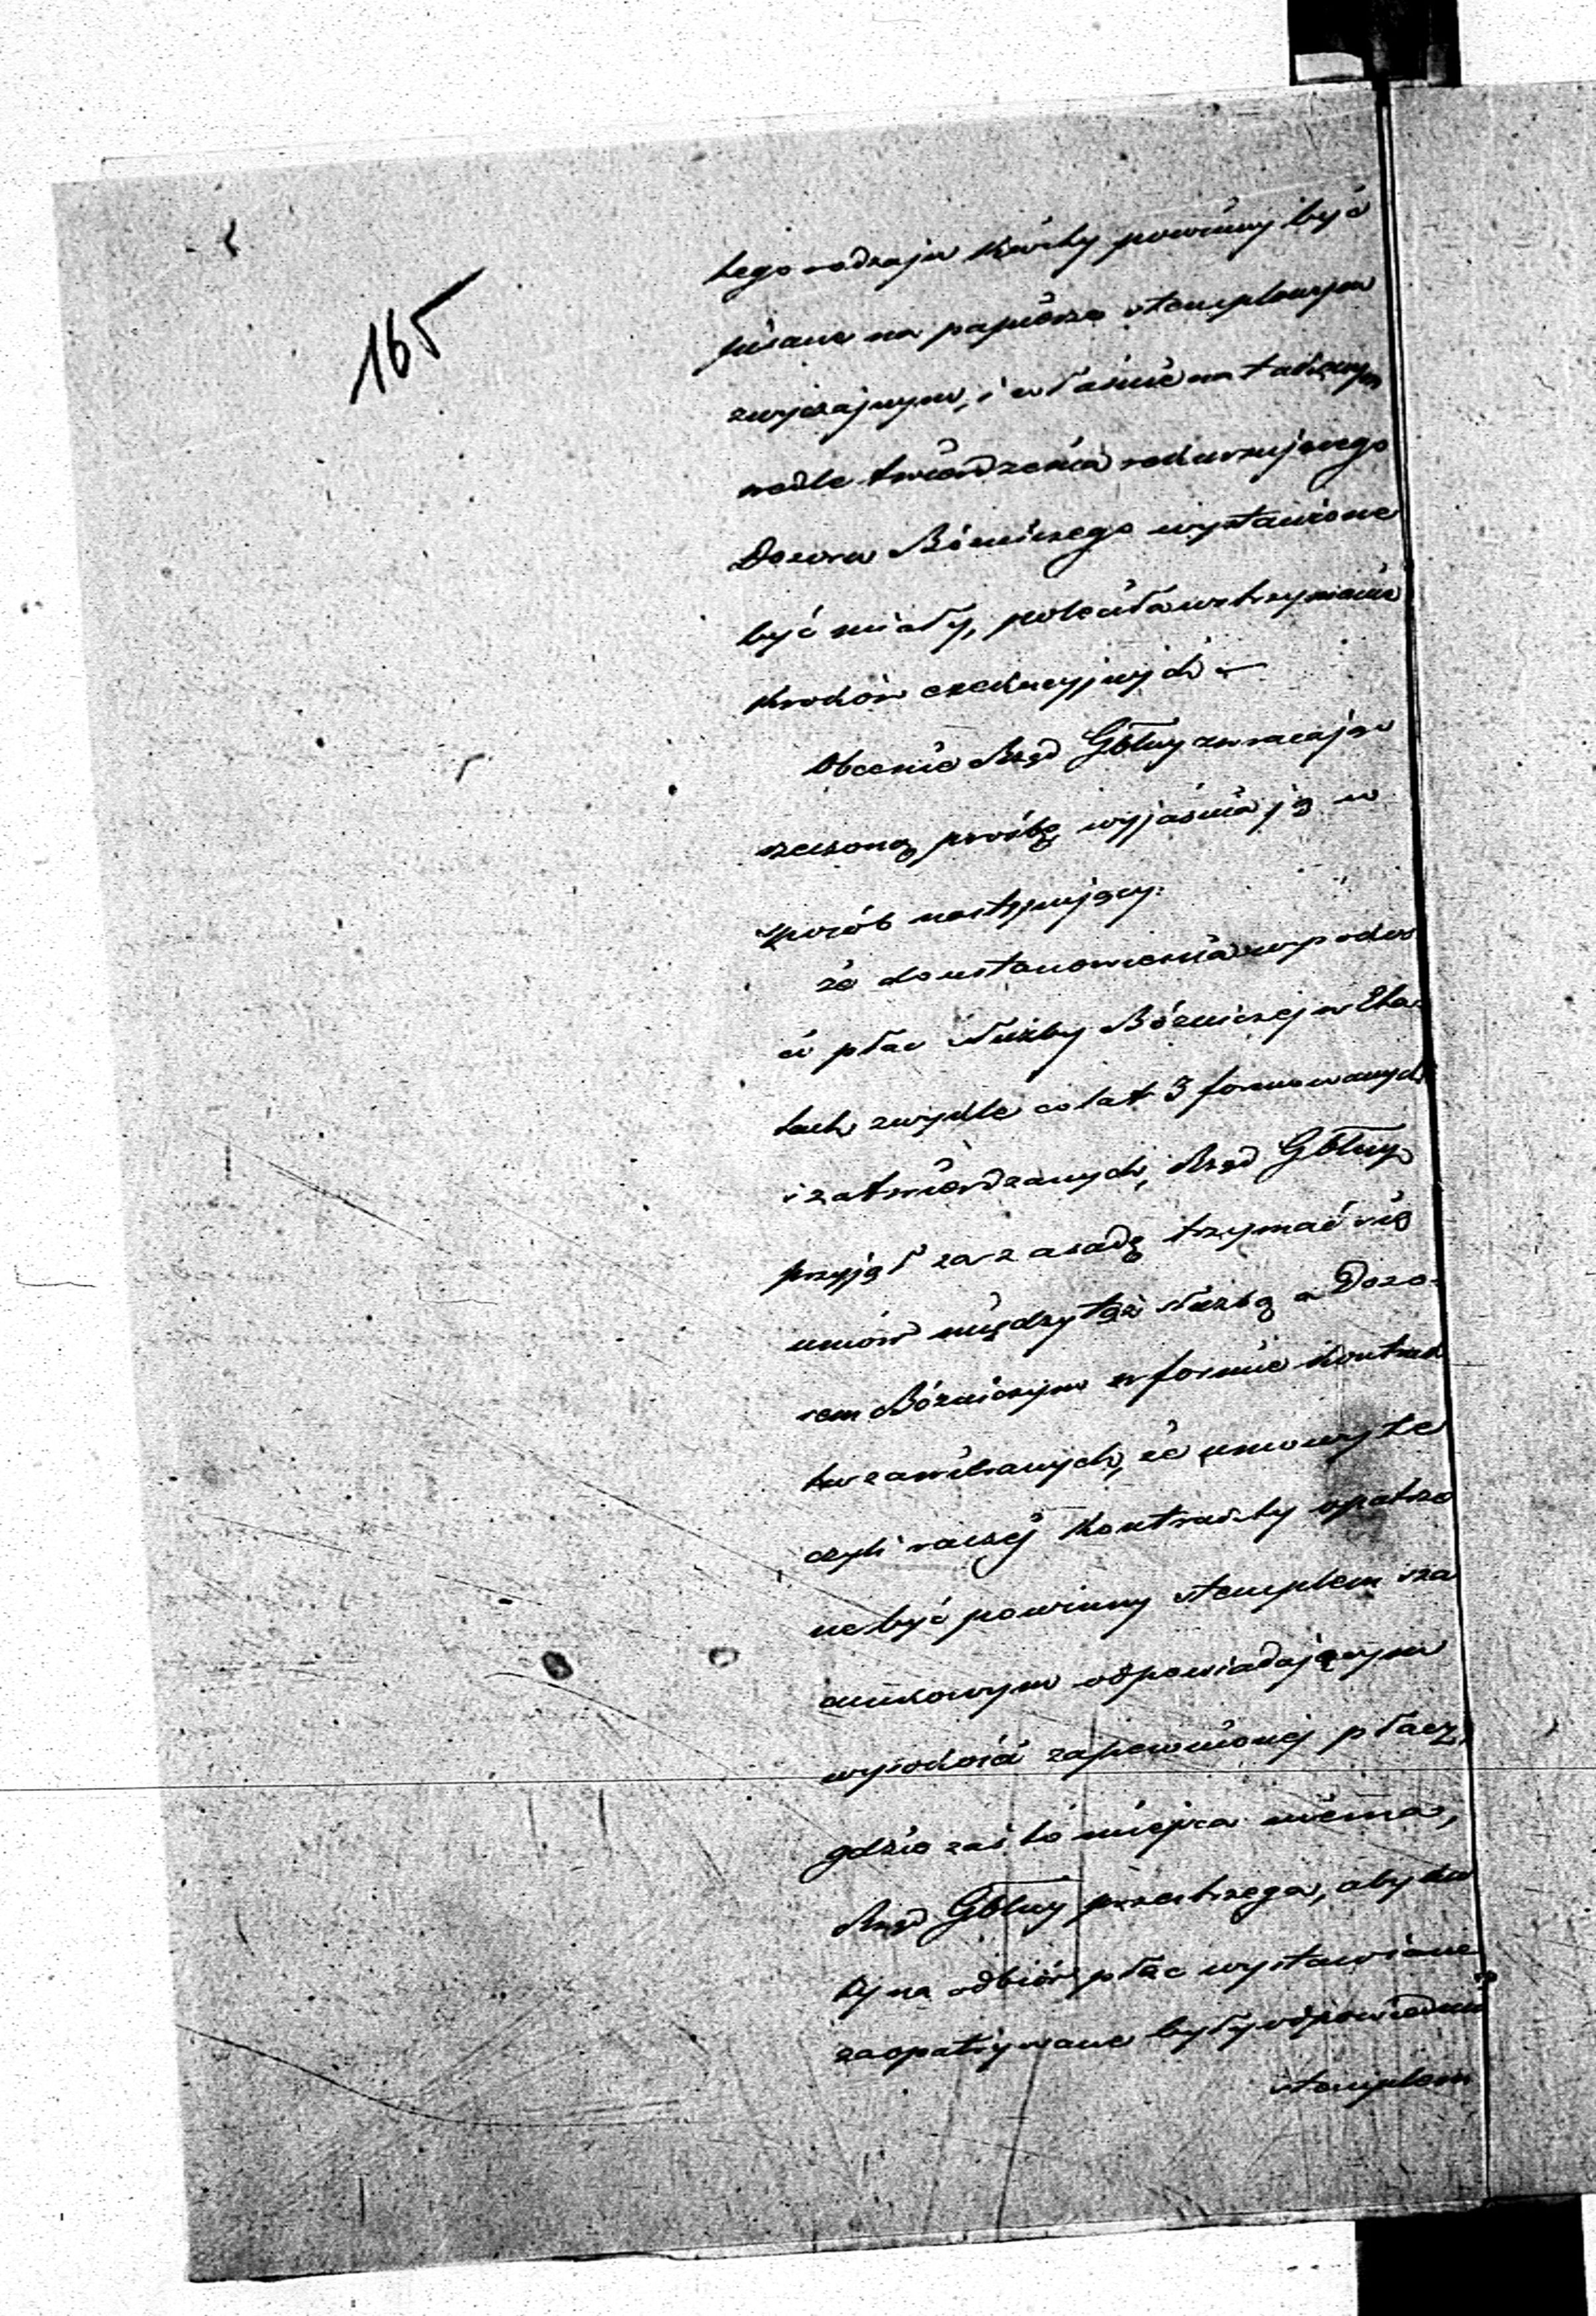 165
tego rodzaju kwity powinny być
pisane na papierze stemplowym
zwyczajnym, i właśnie na takowym
wedle twierdzenia rekursującego
Dozoru Bóźniczego wystawione
być miały, poleciła wstrzymanie
kroków exekucyjnych –
Obecnie Rząd Gblny zwracając
rzeczoną prośbę wyjaśnia ją w
sposób następujący:
że do ustanowienia wysokoś
ci płac służby Bóźniczej w Eta-
tach zwykle co lat 3 formowanych
i zatwierdzanych, Rząd Gblny
przyjął za zasadę trzymać się
umów między tąż służbą a Dozo-
rem Bóźniczym w formie kontrak
tu zawieranych, że umowy te
czyli raczej kontrakty opatrzo
ne być powinny stemplem sza
cunkowym odpowiadającym
wysokości zapewnionej płacy,
gdzie zaś to miejsca niema,
Rząd Gblny przestrzega, aby kwi
ty na odbiór płac wystawiane
zaopatrywane były odpowiednim
stemplem